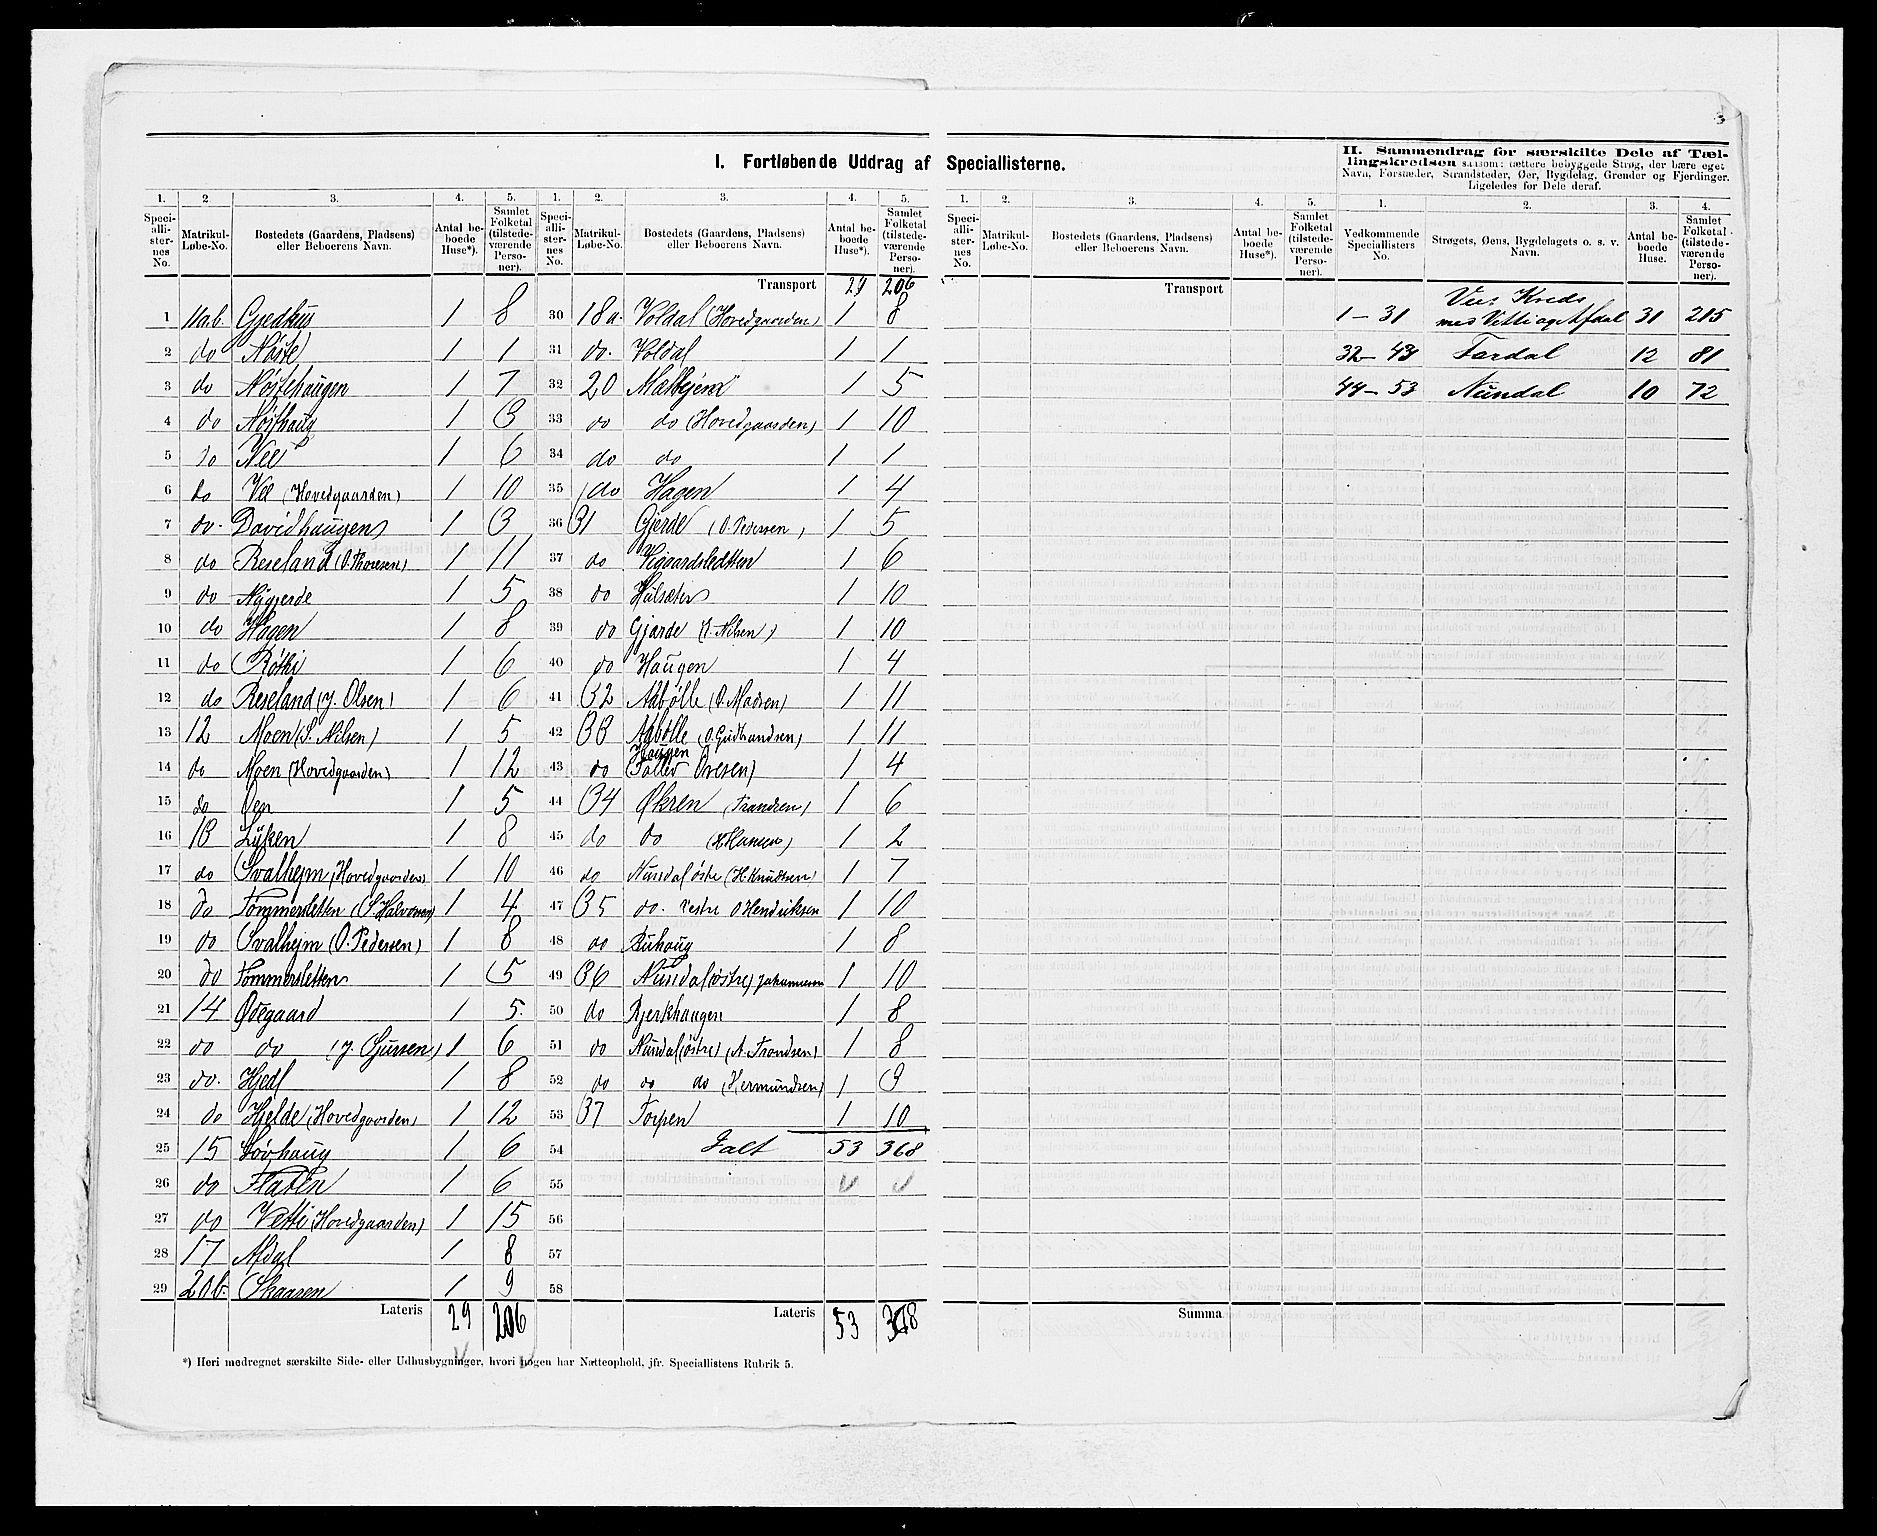 3
I. Fortløbende Uddrag af Speciallisterne.
II. Sammendrag for særskilte Dele af Tællingskredsen saasom: tættere bebyggede Strøg, der bære eget Navn, Forstæder, Strandsteder, Øer, Bygdelag, Grender og Fjerdinger. Ligeledes for Dele deraf.
1. 2. 3. 4. 5. 1. 2. 3. 4. 5. 1. 2. 3. 4. 5. 1. 2. 3. 4.
Speciallisternes No. Matrikul-Løbe-No. Bostedets (Gaardens, Pladsens) eller Beboerens Navn. Antal beboede Huse*). Samlet Folketal (tilstedeværende Personer).
Speciallisternes No. Matrikul-Løbe-No. Bostedets (Gaardens, Pladsens) eller Beboerens Navn. Antal beboede Huse*). Samlet Folketal (tilstedeværende Personer).
Speciallisternes No. Matrikul-Løbe-No. Bostedets (Gaardens, Pladsens) eller Beboerens Navn. Antal beboede Huse*). Samlet Folketal (tilstedeværende Personer).
Vedkommende Speciallisters No. Strøgets, Øens, Bygdelagets o. s. v. Navn. Antal beboede Huse. Samlet Folketal (tilstedeværende Personer).
1 11a.b. Gjedhus 1 8
2 do Nøste 1 1
3 do Nøstehaugen 1 7
4 do Nøsthaug 1 3
5 do Vee 1 6
6 do Vee (Hovedgaarden) 1 10
7 do. Davidhaugen 1 3
8 do Reseland (O. Thoresen) 1 11
9 do Nygjerde 1 5
10 do Hagen 1 8
11 do Røthi 1 6
12 do Reseland (J. Olsen) 1 6
13 12 Moen (S. Nilsen) 1 5
14 do Moen (Hovedgaarden) 1 12
15 do Øen 1 5
16 13 Lyken 1 8
17 do Svalhejm (Hovedgaarden) 1 10
18 do Tømmersletten (S. Halvorsen) 1 4
19 do Svalhejm (O. Pedersen) 1 8
20 do Tømmersletten 1 5
21 14 Ødegaard 1 5.
22 do do (J. Sjursen) 1 6
23 do. Hjedl 1 8
24 do Hjelde (Hovedgaarden) 1 12
25 15 Løvhaug 1 6
26 do Flaten 1 6
27 do Vetti (Hovedgaarden) 1 15
28 17 Afdal 1 8
29 20b. Skaasen 1 9
Lateris 29 206
Transport 29 206
30 18a. Voldal (Hovedgaarden) 1 8
31 do. Voldal 1 1
32 20 Mælhejm 1 5
33 do do (Hovedgaarden) 1 10
34 do do 1 1
35 do Hagen 1 4
36 31 Gjerde (O. Pedersen) 1 5
37 do Vigaardsledtten 1 6
38 do Hulsæter 1 10
39 do Gjerde (J. Nilsen) 1 10
40 do Haugen 1 4
41 32 Aabølle (O. Madsen) 1 11
42 33 Aabølle (O. Gudbrandsen) 1 11
43 do Haugen (Tollev Ovesen) 1 4
44 34 Økren (Trandsen) 1 6
45 do do (H. Hansen) 1 2
46 do Nundal østre (H. Knudsen) 1 7
47 35 do. vestre O Hendriksen 1 10
48 do Buhaug 1 8
49 36 Nundal (østre) Johannesen 1 10
50 do Bjerkhaugen 1 8
51 do Nundal (østre) (A. Trondsen) 1 8
52 do do do (Hermundsen) 1 3
53 37 Torpen 1 10
54 Ialt 53 368
55
56
57
58
Lateris 53 368
Transport
Summa
1 - 31 Vee Kreds med Vetti og Afdal 31 215
32 - 43 Fardal 12 81
44 - 53 Nundal 10 72
*) Heri medregnet særskilte Side- eller Udhusbygninger, hvori nogen har Natteophold, jfr. Speciallistens Rubrik 5.